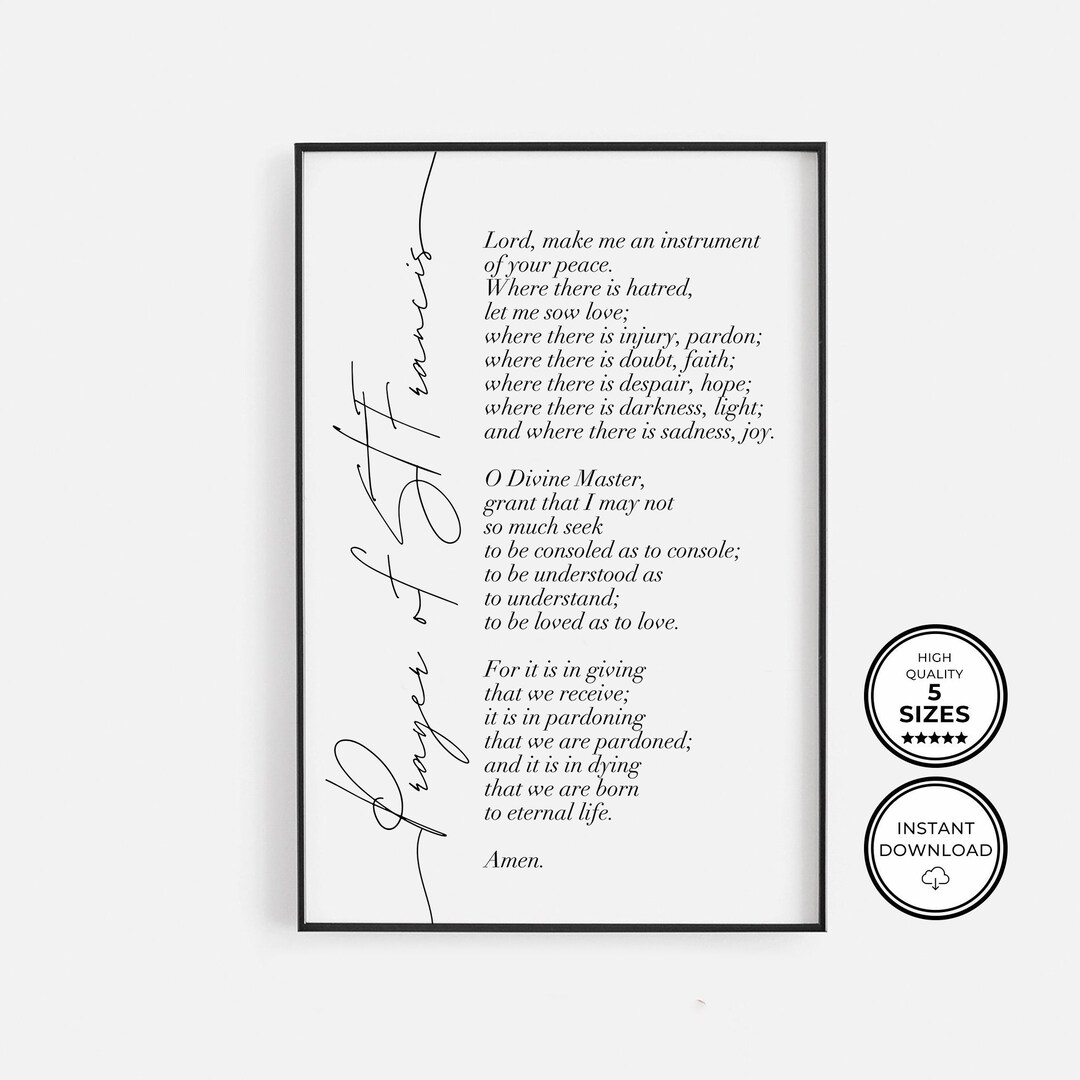 Prayer of ST Francis
Lord, make me an instrument
of your peace.
Where there is hatred,
let me sow love;
where there is injury, pardon;
where there is doubt, faith;
where there is despair, hope;
where there is darkness, light;
and where there is sadness, joy.
O Divine Master,
grant that I may not
so much seek
to be consoled as to console;
to be understood as
to understand;
to be loved as to love.
For it is in giving
that we receive;
it is in pardoning
that we are pardoned;
and it is in dying
that we are born
to eternal life.
Amen.
HIGH
QUALITY
5
SIZES
INSTANT
DOWNLOAD